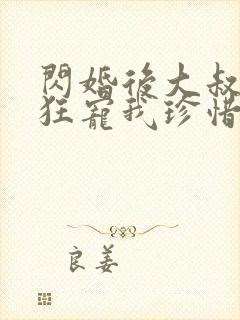 閃婚後大叔
狂寵我珍惜
良姜